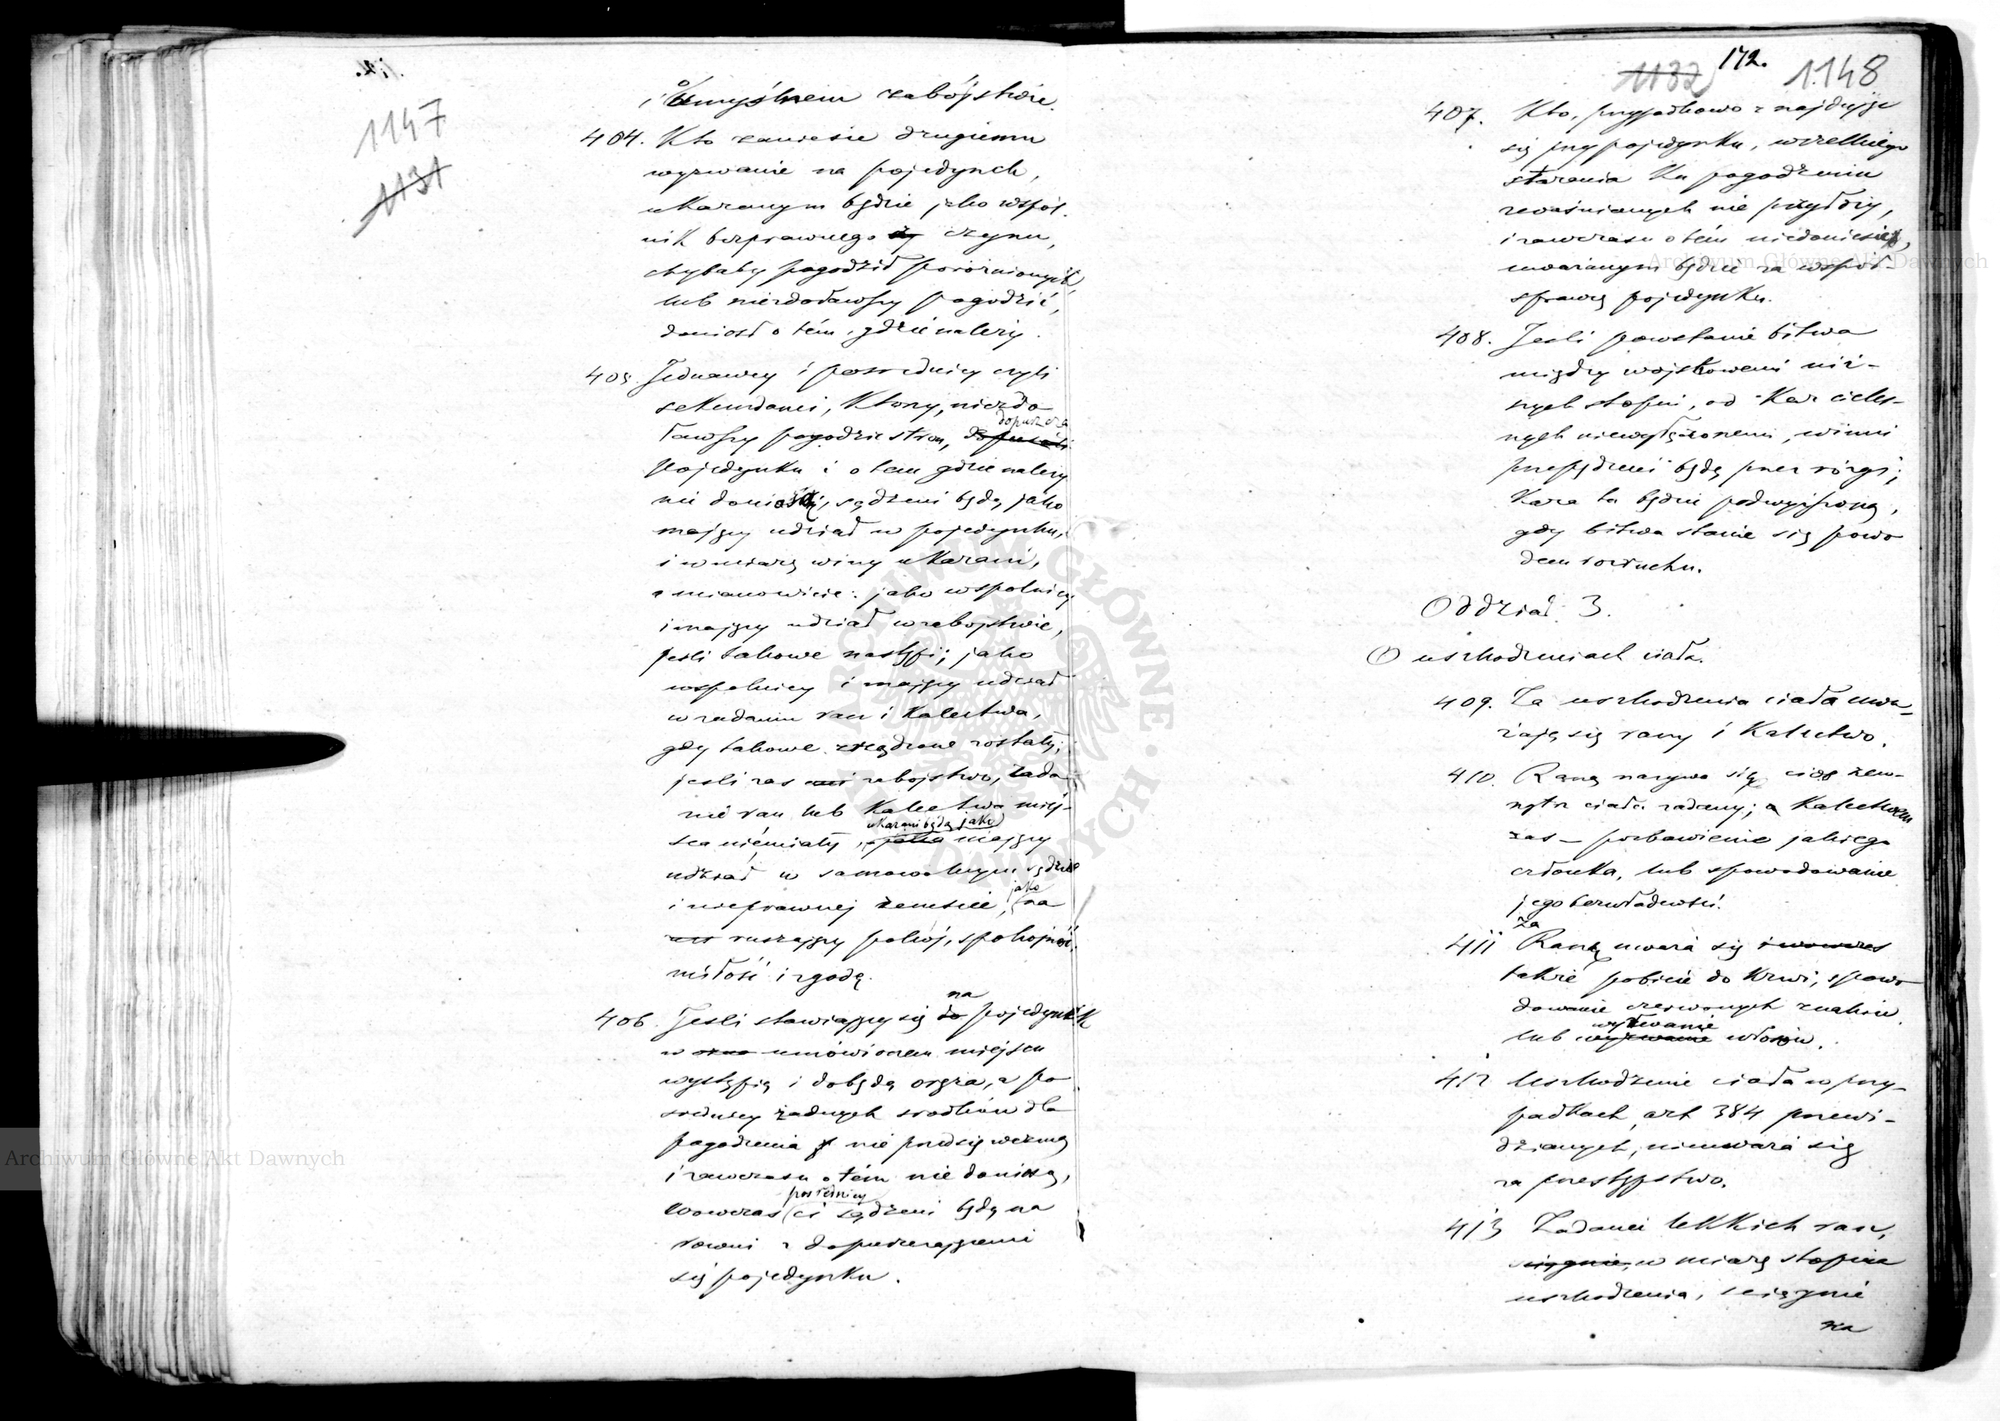 1147
1131
i Umyślnem zabójstwie.
404. Kto zaniesie drugiemu
wyzwanie na pojedynek,
ukaranym będzie jako wspól-
nik bezprawnego czynu,
chybaby pogodził poróżnionych,
lub niezdoławszy pogodzić,
doniosł o tém, gdzie należy.
405. Jednawcy i posrednicy czyli
sekundanci, którzy, niezdo
ławszy pogodzić stron, dopuszczą
pojedynku i o tem gdzie należy
nie doniosą, sądzeni będą, jako
mający udział w pojedynku,
i w miarę winy ukarani,
a mianowicie: jako wspolnicy
i mający udział w zabojstwie,
jeśli takowe nastąpi; jako
wspolnicy i mający udział
w zadaniu ran i kalectwa,
gdy takowe zrządzone zostały;
jesli zas zabojstwo, zada-
nie ran lub kalectwa miej-
sca niemiały, ukarani będą jako mający
udział w samowolnym sądzie
i nieprawnej zemscie, jako na
ruszający pokój, spokojność,
miłość i zgodę.
406. Jesli stawiający się na pojedynek
w umówionem miejscu
wystąpią i dobędą oręża, a po
srednicy żadnych srodków dla
pogodzenia nie przedsięwezmą
i zawczasu o tém nie doniosą,
wowczas ci posrednicy sądzeni będą na
rowni z dopuszczającemi
się pojedynku.
1132 172. 1148
407. Kto, przypadkowo znajdując
się przy pojedynku, wszelkiego
starania ku pogodzeniu
zwaśnionych nie przyłoży,
i zawczasu o tém niedoniesie,
uważanym będzie za wspoł-
sprawcę pojedynku.
408. Jesli powstanie bitwa
między wojskowemi niż-
szych stopni, od kar ciele-
snych niewyłączonemi, winni
przepędzeni będą przez rózgi;
kara ta będzie podwyższoną,
gdy bitwa stanie się powo
dem rozruchu.
Oddział 3.
O uszkodzeniach ciała.
409. Za uszkodzenia ciała uwa-
żają się rany i kalectwo.
410. Raną nazywa się cios zew-
nątrz ciała zadany; a kalectwem
zas – pozbawienie jakiego
członka, lub spowodowanie
jego bezwładności.
411 Za Ranę uważa się i wowczas
także pobicie do krwi, spowo-
dowanie czerwonych znaków
lub wyrwanie włosów.
412 Uszkodzenie ciała w przy-
padkach art 384 przewi-
dzianych, nieuważa się
za przestępstwo.
413 Zadanie lekkich ran,
w miarę stopnia
uszkodzenia, sciągnie
na
Archiwum Główne Akt Dawnych
Archiwum Główne Akt Dawnych
ARCHIWUM GŁÓWNE AKT DAWNYCH